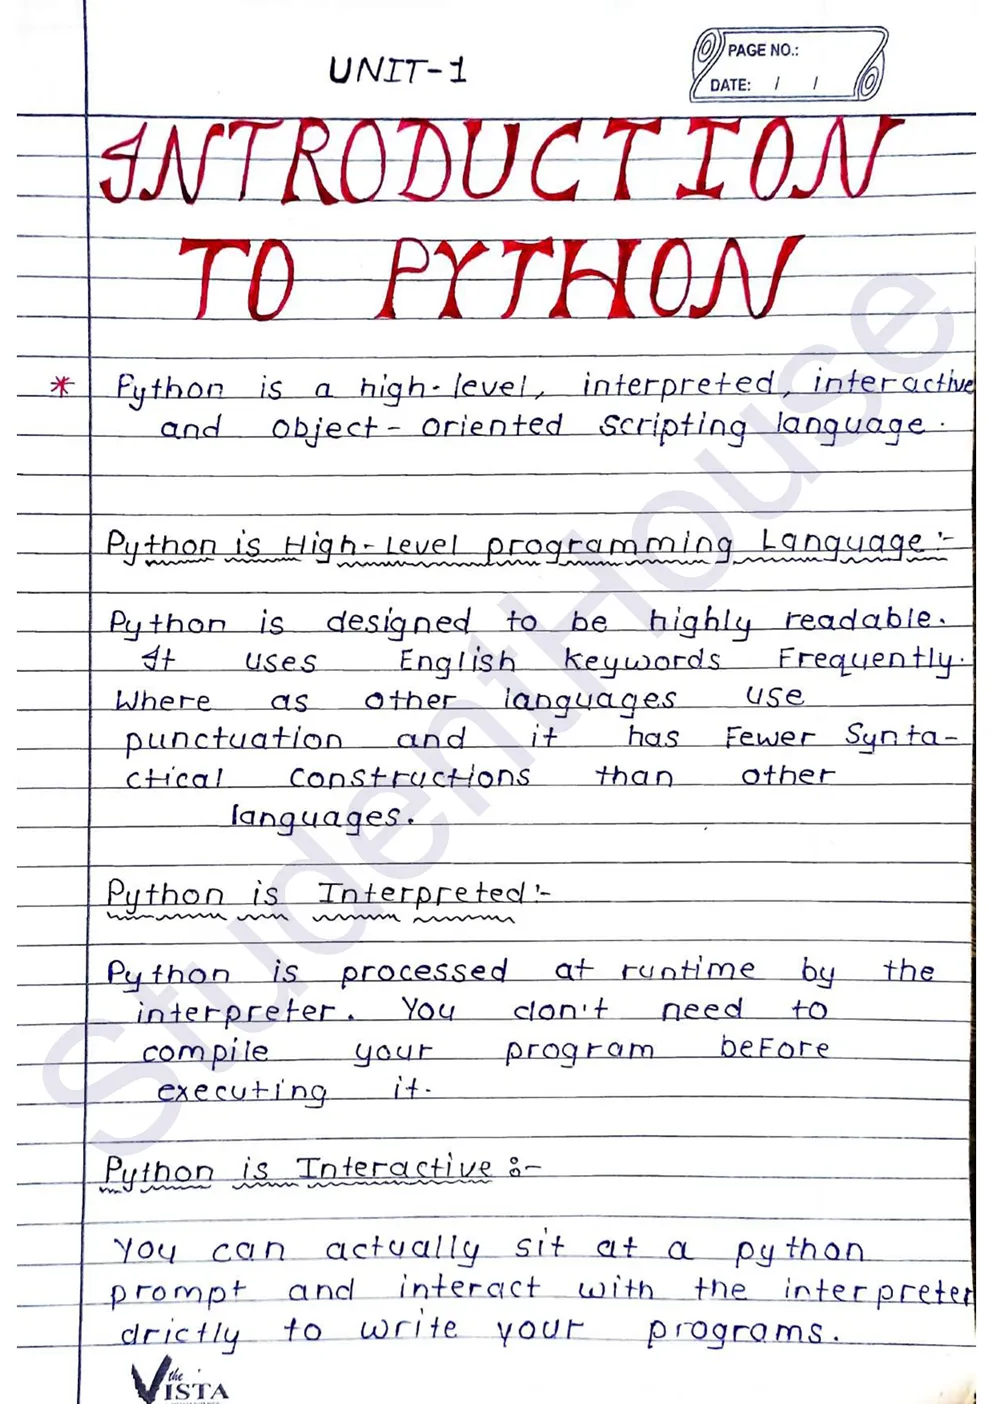 UNIT-1
PAGE NO.:
DATE: / /
INTRODUCTION
TO PYTHON
* Python is a high-level, interpreted, interactive
and object-oriented scripting language.
Python is High-Level programming Language:-
Python is designed to be highly readable.
It uses English keywords Frequently.
Where as other languages use
punctuation and it has Fewer Synta-
ctical constructions than other
languages.
Python is Interpreted:-
Python is processed at runtime by the
interpreter. You don't need to
compile your program beFore
executing it.
Python is Interactive:-
You can actually sit at a python
prompt and interact with the interpreter
drictly to write your programs.
the VISTA
StudentHouse